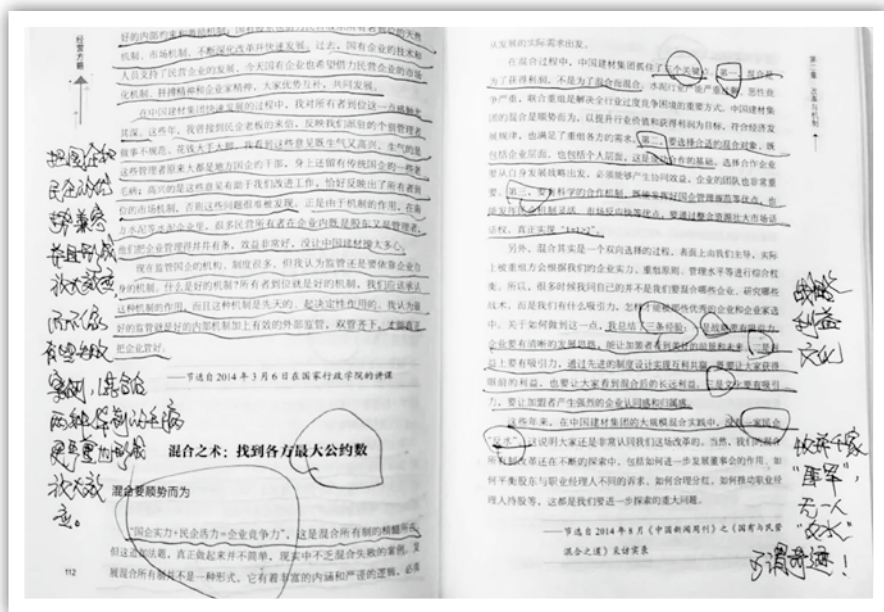 经营方略
好的内部约束和激励机制；国有股东
机制、市场机制，不断深化改革并快速发展。过去，国有企业的技术和
人员支持了民营企业的发展，今天国有企业也希望借力民营企业的市场
化机制、拼搏精神和企业家精神，大家优势互补，共同发展。
在中国建材集团快速发展的过程中，我对所有者到位这一点感触尤
其深。这些年，我曾接到民企老板的来信，反映我们派驻的个别管理者
做事不规范、花钱大手大脚，我看到这些意见既生气又高兴，生气的是
这些管理者原来大都是地方国企的干部，身上还留有传统国企的一些老
毛病；高兴的是这些意见有助于我们改进工作，恰好反映出了所有者到
位的市场机制，否则这些问题很难被发现。正是由于机制的作用，在南
方水泥等水泥企业里，很多民营所有者在企业内既是股东又是管理者，
他们把企业管理得井井有条，效益非常好，没让中国建材增大多心。
现在监管国企的机构、制度很多，但我认为监管还是要依靠企业自
身的机制。什么是好的机制？所有者到位就是好的机制，我们应该承认
这种机制的作用，而且这种机制是先天的、起决定性作用的。我认为最
好的监管就是好的内部机制加上有效的外部监管，双管齐下，才能真正
把企业管好。
——节选自 2014 年 3 月 6 日在国家行政学院的讲课
混合之术：找到各方最大公约数
混合要顺势而为
“国企实力+民企活力=企业竞争力”，这是混合所有制的精髓所在。
但这道加法题，真正做起来并不简单，现实中不乏混合失败的案例。发
展混合所有制并不是一种形式，它有着丰富的内涵和严谨的逻辑，必须
112
把国企和
民企的优
势兼容
并且形成
放大效应
而不像
有些失败
案例，混合后
两种体制的毛病
更严重的形成
放大效
应。
第二章 改革与机制
从发展的实际需求出发。
在混合过程中，中国建材集团抓住了三个关键点。第一，混合是
为了获得利润，不是为了混合而混合。水泥行业产能严重过剩、恶性竞
争严重，联合重组是解决全行业过度竞争困境的重要方式。中国建材集
团的混合是顺势而为，以提升行业价值和获得利润为目标，符合经济发
展规律，也满足了重组各方的需求。第二，要选择合适的混合对象，既
包括企业层面，也包括个人层面，这是成功合作的基础。选择合作企业
要从自身发展战略出发，必须能够产生协同效益，企业的团队也非常重
要。第三，要有科学的合作机制，既能发挥好国企管理规范等优点，也
能发挥民企机制灵活、市场反应快等优点，要通过整合资源壮大市场话
语权，真正实现“1+1>2”。
另外，混合其实是一个双向选择的过程，表面上由我们主导，实际
上被重组方会根据我们的企业实力、重组原则、管理水平等进行综合权
衡。所以，很多时候我问自己的并不是我们要混合哪些企业、研究哪些
战术，而是我们有什么吸引力，怎样才能被那些优秀的企业和企业家选
中。关于如何做到这一点，我总结了三条经验：一是战略要有吸引力，
企业要有清晰的发展思路，能让加盟者看到美好的前景和未来。二是利
益上要有吸引力，通过先进的制度设计实现互利共赢，既要让大家获得
眼前的利益，也要让大家看到混合后的长远利益。三是文化要有吸引
力，要让加盟者产生强烈的企业认同感和归属感。
这些年来，在中国建材集团的大规模混合实践中，没有一家民企
“反水”，这说明大家还是非常认同我们这场改革的。当然，我们的混合
所有制改革还在不断的探索中，包括如何进一步发展董事会的作用、如
何平衡股东与职业经理人不同的诉求、如何合理分红、如何推动职业经
理人持股等，这都是我们要进一步探索的重大问题。
——节选自 2014 年 8 月《中国新闻周刊》之《国有与民营
混合之道》采访实录
战略
利益
文化
收编千家
“军”，
无一人
“反水”
可谓奇迹！